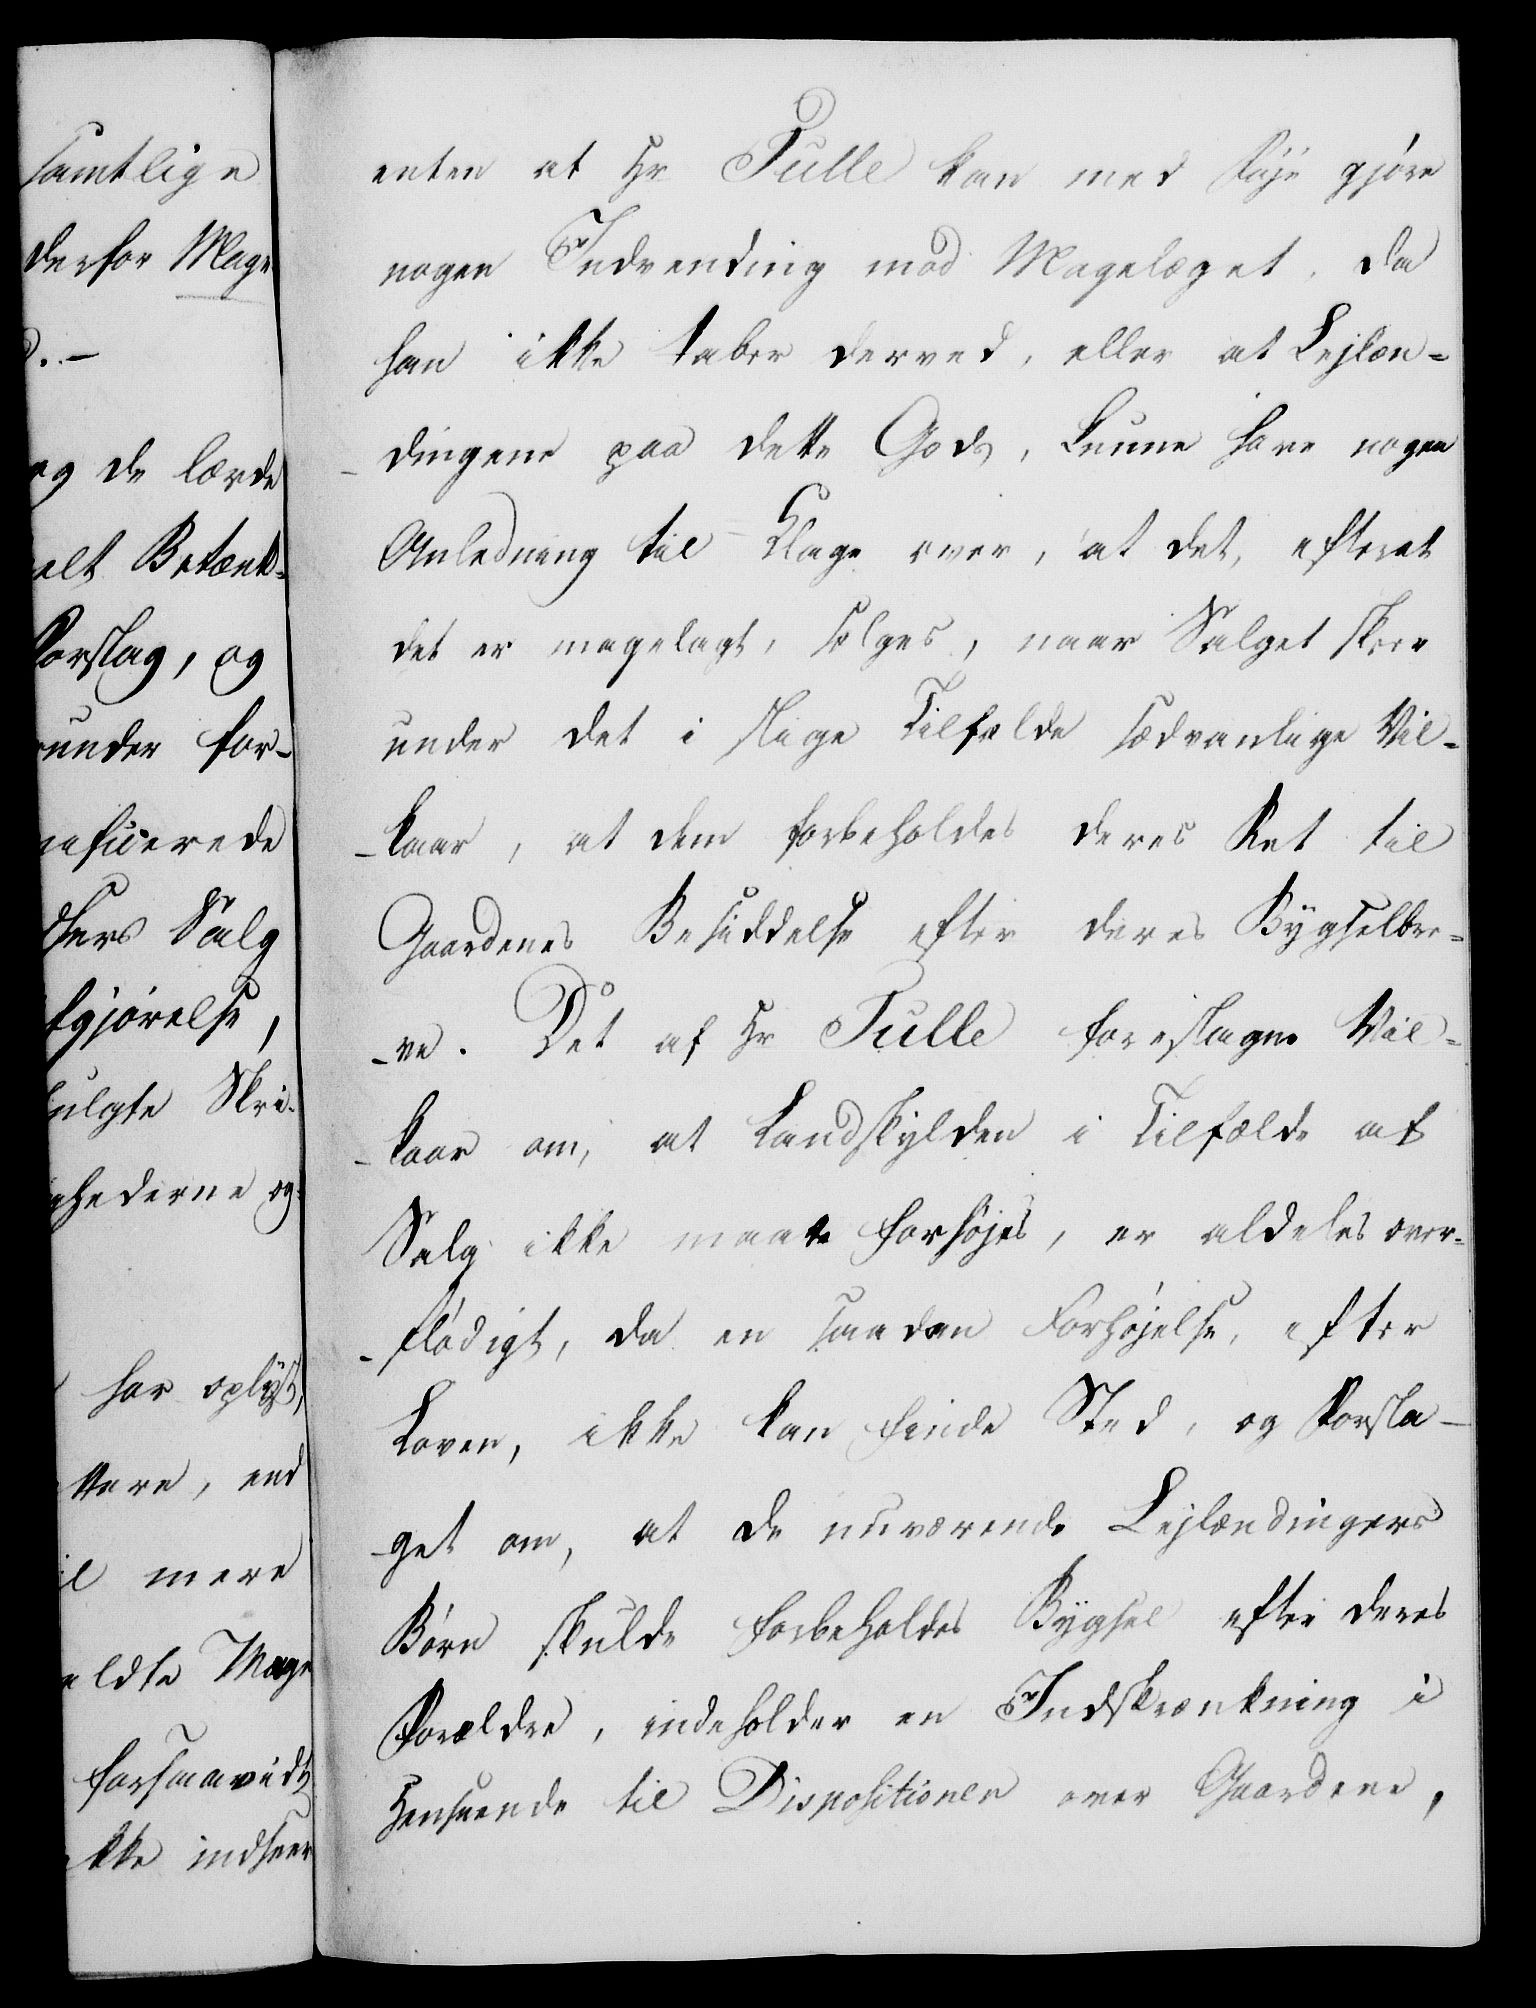 samtlige
derfor Mage
D. –
og de lærde
elt Betænk-
Forslag, og
under for-
neficerede
dsers Salg
fgjörelse,
fulgte Skri-
ghederne og
har oplyst,
ttere, end
il mere
eldte Mage
forsaavidt
ikke indseer
enten at Hr Tulle kan med Föje gjöre
nogen Indvending mod Magelæget, da
han ikke taber derved, eller at Lejlæn-
dingene paa dette Gods, kunne have nogen
Anledning til Klage over, at det, efterat
det er magelagt, sælges, naar Salget skeer
under det i slige Tilfælde sædvanlige Vil-
-kaar, at dem forbeholdes deres Ret til
Gaardenes Besiddelse efter deres Bygselbre-
-ve. Det af Hr Tulle foreslagne Vil-
-kaar om, at Landskylden i Tilfælde af
Salg ikke maate forhöjes, er aldeles over-
-flödigt, da en saadan Forhöjelse, efter
Loven, ikke kan finde Sted, og Forsla-
-get om, at de nuværende Lejlændingers
Börn skulde forbeholdes Bygsel efter deres
Forældre, indeholder en Indskrænkning i
Henseende til Dispositionen over Gaardene,